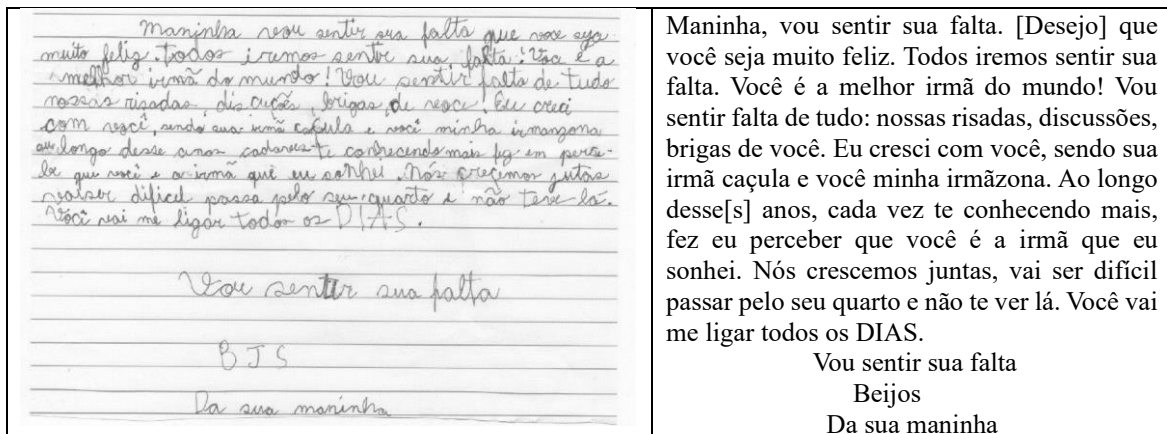 Maninha vou sentir sua falta que voce seja
muito feliz. todos iremos sentir sua falta! Voce é a
melhor irmã do mundo! Vou sentir falta de tudo
nossas risadas, discuções, brigas de voce. Eu creci
com você, sendo sua irmã caçula e você minha irmanzona
au longo desse anos cadaveis te conhecendo mais fez em perce-
be que você e a irmã que eu sonhei. Nós crecemos jutas
vaiser dificil passa pelo seu quarto e não teve lá.
Você vai me ligar todos os DIAS.
Vou sentir sua falta
BJS
Da sua maninha
Maninha, vou sentir sua falta. [Desejo] que
você seja muito feliz. Todos iremos sentir sua
falta. Você é a melhor irmã do mundo! Vou
sentir falta de tudo: nossas risadas, discussões,
brigas de você. Eu cresci com você, sendo sua
irmã caçula e você minha irmãzona. Ao longo
desse[s] anos, cada vez te conhecendo mais,
fez eu perceber que você é a irmã que eu
sonhei. Nós crescemos juntas, vai ser difícil
passar pelo seu quarto e não te ver lá. Você vai
me ligar todos os DIAS.
Vou sentir sua falta
Beijos
Da sua maninha